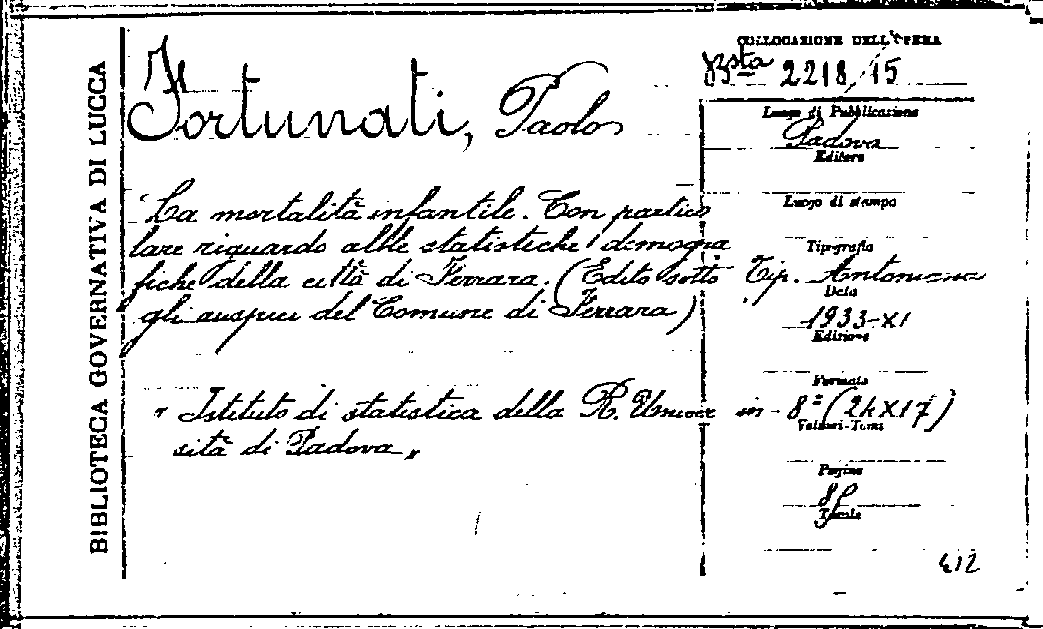 BIBLIOTECA GOVERNATIVA DI LUCCA
Fortunati, Paolo
La mortalità infantile. Con partico
lare riguardo alle statistiche demogra
fiche della città di Ferrara. (Edito sotto
gli auspici del Comune di Ferrara)
"Istituto di statistica della R. Univer
sità di Padova"
COLLOCAZIONE DELL'OPERA
Bsta 2218/15
Luogo di Pubblicazione
Padova
Editore
Luogo di stampa
Tipografia
Tip. Antoniana
Data
1933-XI
Edizione
Formato
in-8° (24X17)
Volumi-Tomi
Pagine
Tavole